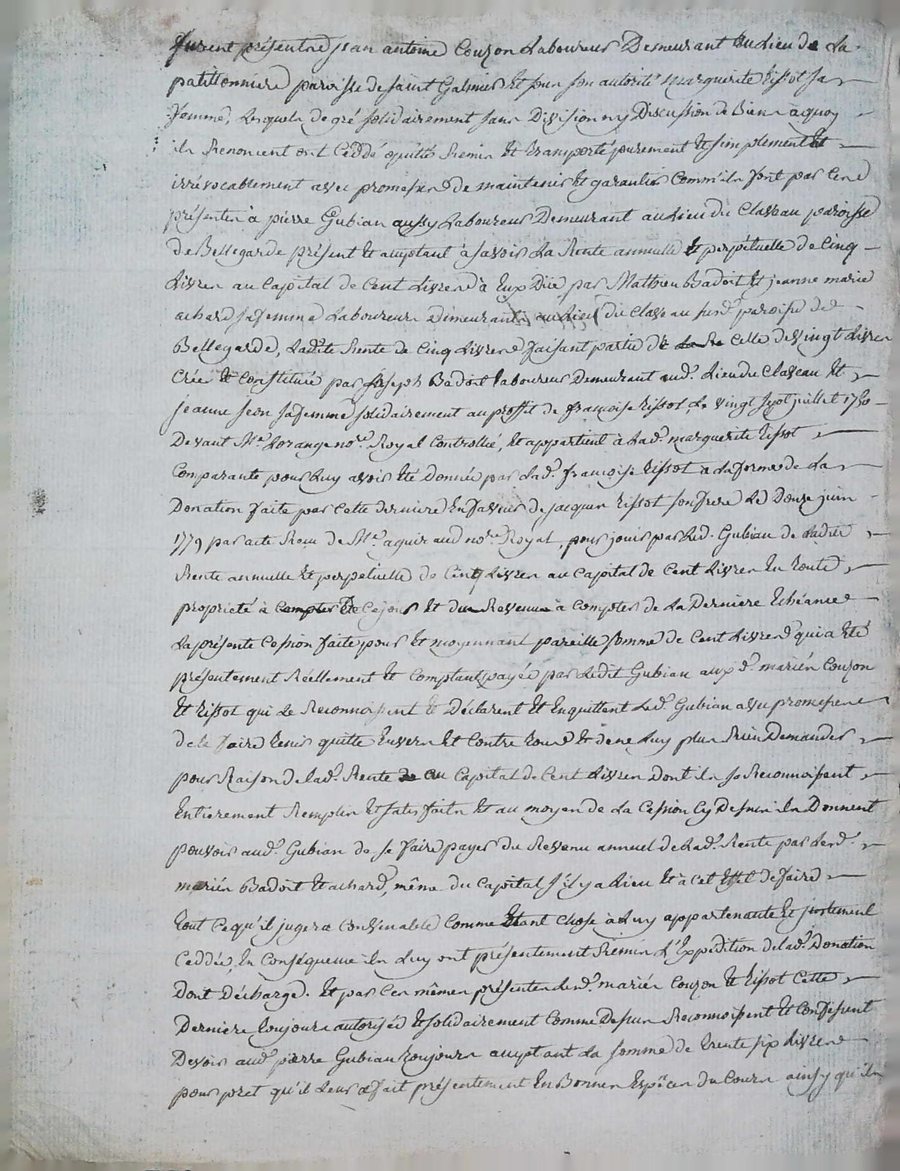 furent présents jean antoine Couzon Laboureur Demeurant au Lieu de La
patillonniere paroisse de saint Galmier Et sous son autorité marguerite Rissot sa
femme, Lesquels de gré solidairement sans Division ny Discussion de Biens a quoy
ils Renoncent ont Ceddé quitté Remis Et transporté purement Et simplement Et
irrévocablement avec promesses de maintenir Et garantir Comm'ils font par Ces
présentes à pierre Gubian aussy Laboureur Demeurant au Lieu du Claveau paroisse
de Bellegarde présent Et acceptant à savoir La Rente annuelle Et perpétuelle de Cinq
Livres au Capital de Cent Livres à Eux Düe par Mathieu Badoit Et jeanne marie
achard sa femme Laboureurs Demeurants au Lieu du Claveau susd. paroisse de
Bellegarde, Ladite Rente de Cinq Livres faisant partie de Celle de vingt Livres
Créée Et Constituée par joseph Badoit Laboureur Demeurant aud. Lieu du Claveau Et
jeanne jeon sa femme solidairement au proffit de françoise Rissot Le vingt sept juillet 1750
Devant Me. Lorange nore. Royal Controllé, Et appartient à Lad. marguerite Rissot
Comparante pour Luy avoir Eté Donnée par Lad. françoise Rissot a La forme de La
Donation faite par Cette derniere En faveur de jacques Rissot son frere Le Douze juin
1779 par acte Recu de Me. nore. Royal, pour jouir par Led. Gubian de Ladite
Rente annuelle Et perpetuelle de Cinq Livres au Capital de Cent Livres En toute
propriété à Compter De Ce jour Et du Revenu à Compter de La Derniere Echéance
La présente Cession faite pour Et moyennant pareille somme de Cent Livres qui a Eté
présentement Réellement Et Comptant payée par Ledit Gubian auxd. mariés Couzon
Et Rissot qui Le Reconnoissent Et Déclarent Et Enquittent Led. Gubian avec promesses
de le faire tenir quitte Envers Et Contre tous Et de ne Luy plus Rien Demander
pour Raison de Lad. Rente au Capital de Cent Livres Dont ils se Reconnoissent
Entierement Remplis Et satisfaits Et au moyen de La Cession Cy Dessus ils Donnent
pouvoir aud. Gubian de se faire payer du Revenu annuel de Lad. Rente par Lesd.
mariés Badoit Et achard, même du Capital s'il y a Lieu Et à Cet Effet de faire
tout Ce qu'il jugera Convenable Comme Etant Chose à Luy appartenante Et justement
Ceddée, En Conséquence ils Luy ont présentement Remis L'Expédition de Lad. Donation
Dont Décharge. Et par Ces mêmes présentes Lesd. mariés Couzon Et Rissot Cette
Derniere toujours autorisée Et solidairement Comme Dessus Reconnoissent Et Confessent
Devoir aud. pierre Gubian toujours acceptant La somme de trente six Livres
pour pret qu'il Leur a fait présentement En Bonnes Espêces du Cours ainsy qu'ils